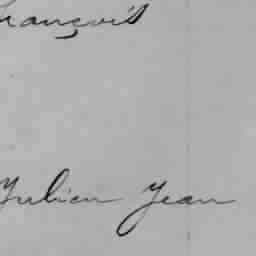 François
Julien Jean